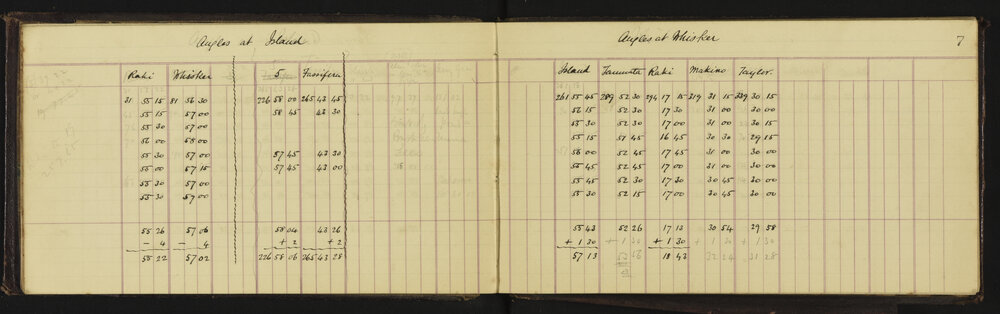 Angles at Island
Raki Whisker 5 Fassifern
31 55 15 81 56 30 226 58 00 265 43 45
55 15 57 00 58 45 43 30
55 30 57 00
56 00 58 00
55 30 57 00 57 45 43 30
55 00 57 15 57 45 43 00
55 30 57 00
55 30 57 00
55 26 57 06 58 04 43 26
- 4 - 4 + 2 + 2
55 22 57 02 226 58 06 265 43 28
Angles at Whisker 7
Island Raki Makino Taylor
261 55 45 289 52 30 294 17 15 319 31 15 339 30 15
56 15 52 30 17 30 31 00 30 00
55 30 52 30 17 00 31 00 30 15
55 15 51 45 16 45 30 30 29 15
56 00 52 45 17 45 31 00 30 00
55 45 52 45 17 00 31 00 30 00
55 45 52 30 17 30 30 45 30 00
55 30 52 15 17 00 30 45 30 00
55 43 52 26 17 13 30 54 29 58
+ 1 30 + 1 30 + 1 30 + 1 30 + 1 30
57 13 53 56 18 43 32 24 31 28